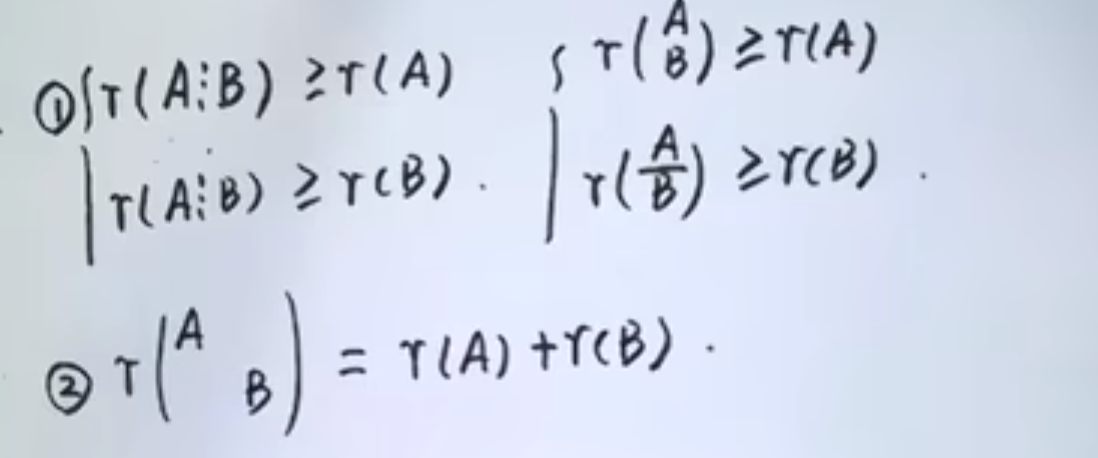 ① { r(A⋮B) ≥ r(A)   { r(A B) ≥ r(A)
r(A⋮B) ≥ r(B).   r(A/B) ≥ r(B).
② r(A B) = r(A)+r(B).